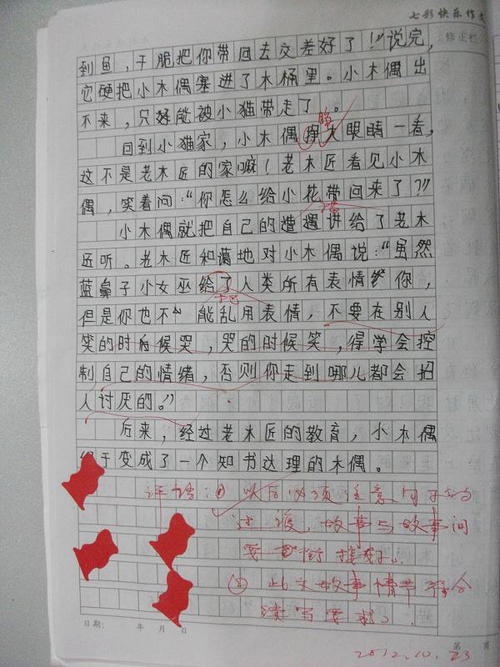 七彩快乐作文
到鱼，干脆把你带回去交差好了！”说完，
它硬把小木偶塞进了木桶里。小木偶出
不来，只好能被小猫带走了。
回到小猫家，小木偶睁大眼睛一看，
这不是老木匠的家嘛！老木匠看见小木
偶，笑着问：“你怎么给小花带回来了？”
小木偶就把自己的遭遇讲给了老木
匠听。老木匠和蔼地对小木偶说：“虽然
蓝鼻子小女巫给了人类所有表情给你，
但是你也不能乱用表情，不要在别人
笑的时后候哭，哭的时候笑，得学会控
制自己的情绪，否则你走到哪儿都会招
人讨厌的。”
后来，经过老木匠的教育，小木偶
终于变成了一个知书达理的木偶。
评语：① 以后必须注意句子的
过渡，故事与故事间
要衔接好。
② 此文故事情节符合
续写要求。
日期： 年 月 日
第 页
2012.10.23